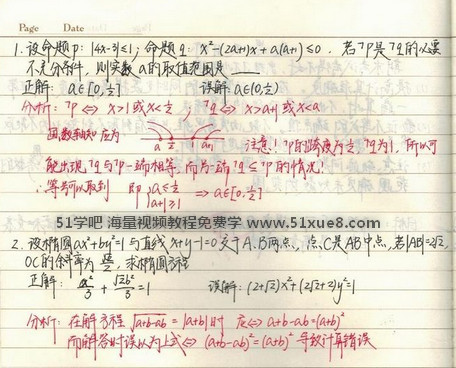 Page Date
1. 设命题p: |4x-3|≤1; 命题q: x²-(2a+1)x+a(a+1)≤0. 若¬p是¬q的必要
不充分条件, 则实数a的取值范围是____
正解: a∈[0,½] 误解: a∈(0,½)
分析: ¬p⇔x>1或x<½, ¬q⇔x>a+1或x<a
因数轴知应为 a ½ 1 a+1 注意! ¬p的跨度为½, ¬q为1, 所以可
能出现¬q与¬p一端相等, 而另一端¬q⊆¬p的情况!
∴等号可以取到 即 { a≤½ a+1≥1 ⇒ a∈[0,½]
51学吧 海量视频教程免费学 www.51xue8.com
2. 设椭圆ax²+by²=1与直线x+y-1=0交于A.B两点, 点C是AB中点, 若|AB|=2√2,
OC的斜率为 , 求椭圆方程
正解: x²/3+√2y²/3=1 误解: (2+√2)x²+(2√2+2)y²=1
分析: 在解方程 √(a+b-ab)=|a+b|时 应⇔a+b-ab=(a+b)²
而解答时误以为上式⇔(a+b-ab)²=(a+b)² 导致计算错误